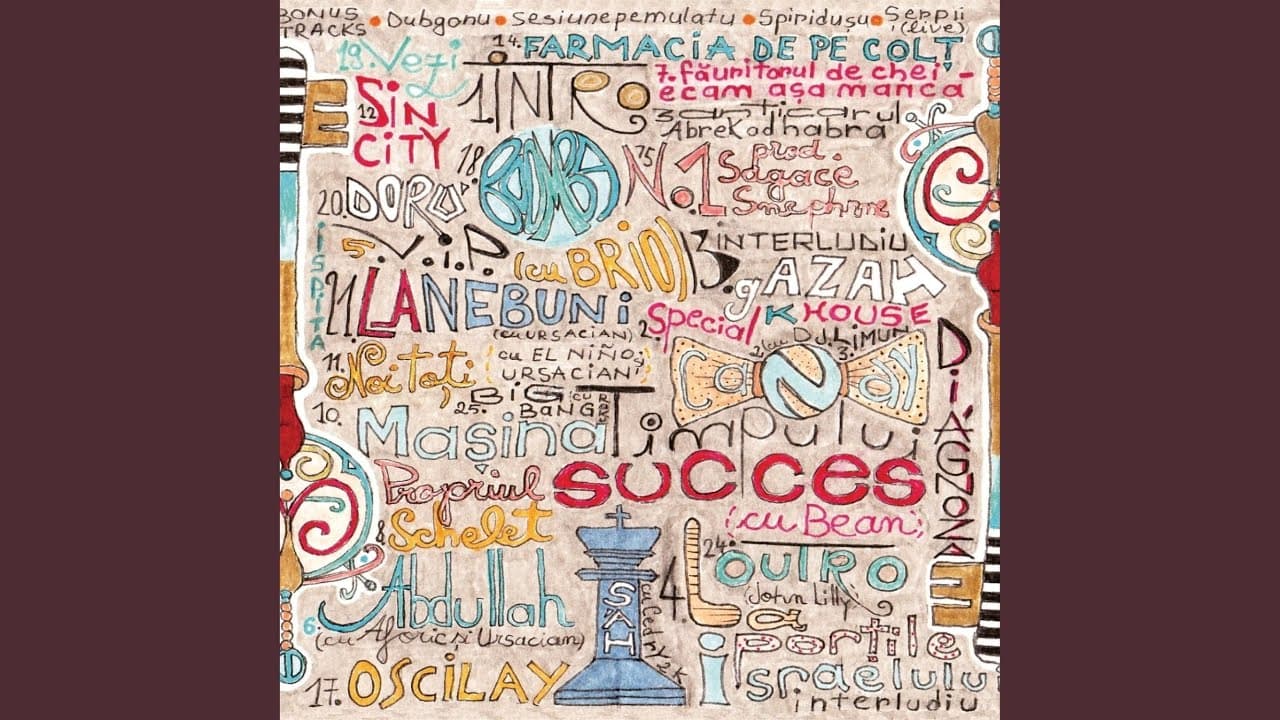 BONUS TRACKS • Dubgonu • Sesiunepemulatu • Spiridușu • Șerpii (live)
19. Vezi
14. FARMACIA DE PE COLȚ
12 SIN CITY
1. INTRO
7. făuritorul de chei -
ecam așa manca
3 anticarul
Abrekodhabra
18. BOMBA
15 No.1 prod.
Sagace
20. DORU'
5. V.I.P. (cu BRIO)
13. INTERLUDIU
gAZAH
ISPITA
21. LANEBUNI
(cu URSACIAN)
2. Special K HOUSE
2. (cu DJ. LIMUN 3.
CaNdy
11. Noi toți
(cu EL NIÑO și
URSACIAN)
25. BIG BANG
10. Mașina Timpului
DIAGNOZA
Propriul SUCCES
(cu Bean)
& Schelet
24. OUTRO
(John Lilly)
6. Abdullah
(cu Aforic și Ursacian)
ȘAH
4. La porțile
israelului
interludiu
17. OSCILAY